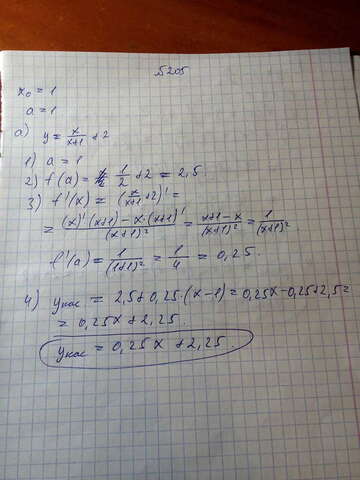 №205
x₀ = 1
a = 1
а) y = x/(x+1) + 2
1) a = 1
2) f(a) = 1/2 + 2 = 2,5
3) f'(x) = (x/(x+1) + 2)' =
= ((x)'(x+1) - x·(x+1)')/(x+1)² = (x+1-x)/(x+1)² = 1/(x+1)²
f'(a) = 1/(1+1)² = 1/4 = 0,25.
4) yкас = 2,5 + 0,25·(x-1) = 0,25x - 0,25 + 2,5 =
= 0,25x + 2,25.
yкас = 0,25x + 2,25.